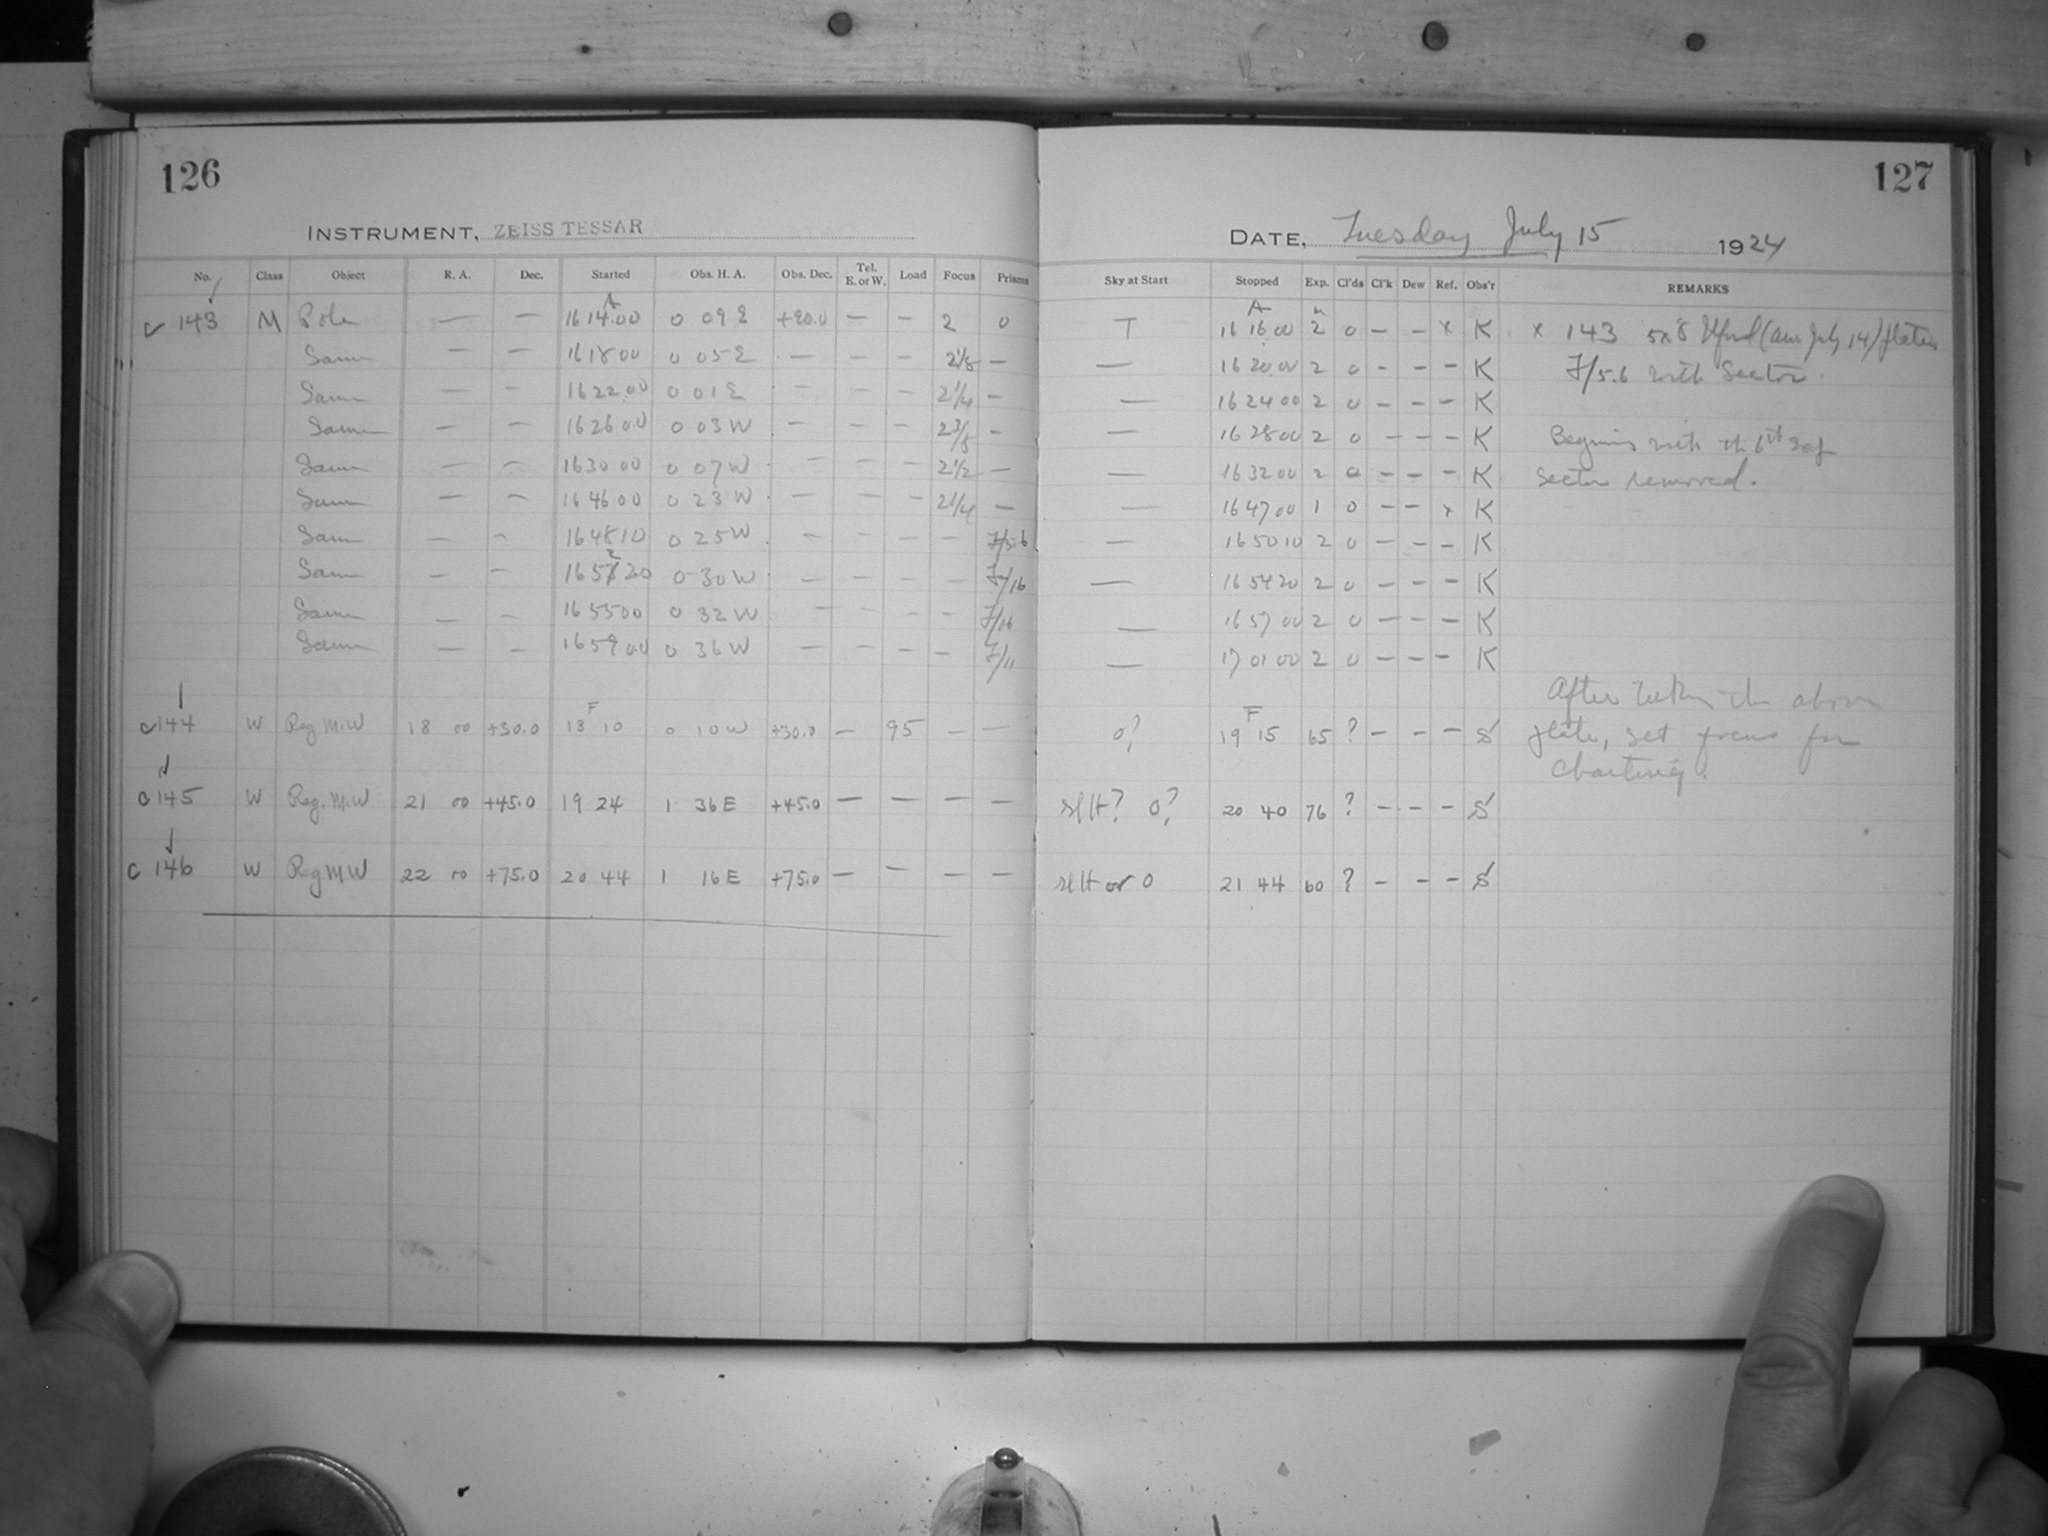 126
127
INSTRUMENT, ZEISS TESSAR
DATE, Tuesday July 15 1924
No. Class Object R. A. Dec. Started Obs. H. A. Obs. Dec. Tel. E. or W. Load Focus Prisms Sky at Start Stopped Exp. Cl'ds Cl'k Dew Ref. Obs'r REMARKS
c 143 M Pole — — 16 14 00 0 09 E +90.0 — — 2 0 T 16 16 00 2 0 — — x K x 143 5x8 (am July 14) plates
Same — — 16 18 00 0 05 E — — — 2 1/8 — — 16 20 00 2 0 - - - K F/5.6 with Sector.
Same — — 16 22 00 0 01 E — — — 2 1/4 — — 16 24 00 2 0 - - - K
Same — — 16 26 00 0 03 W — — — 2 3/8 — — 16 28 00 2 0 - - - K Begins with th 6th
Same — — 16 30 00 0 07 W — — — 2 1/2 — — 16 32 00 2 0 - - - K Sector removed.
Same — — 16 46 00 0 23 W — — — 2 1/4 — — 16 47 00 1 0 — — x K
Same — — 16 48 10 0 25 W — — — — F/5.6 — 16 50 10 2 0 — — — K
Same — — 16 52 20 0 30 W — — — — F/16 — 16 54 20 2 0 — — — K
Same — — 16 55 00 0 32 W — — — — F/16 — 16 57 00 2 0 — — — K
Same — — 16 59 00 0 36 W — — — — F/11 — 17 01 00 2 0 — — — K
After taking the above
c 144 W Reg M.W 18 00 +30.0 18 10 0 10 W +30.0 — 95 — — 0? 19 15 65 ? — — — S plate, set focus for
charting.
c 145 W Reg. M.W 21 00 +45.0 19 24 1 36 E +45.0 — — — — slH? 0? 20 40 76 ? — — — S
c 146 W Reg M W 22 00 +75.0 20 44 1 16 E +75.0 — — — — slH or 0 21 44 60 ? — — — S